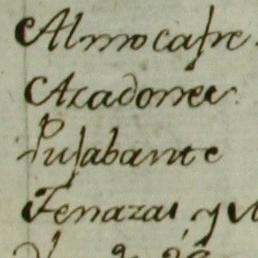 Almocafre.
Azadones.
Pujabante
Tenazas, y